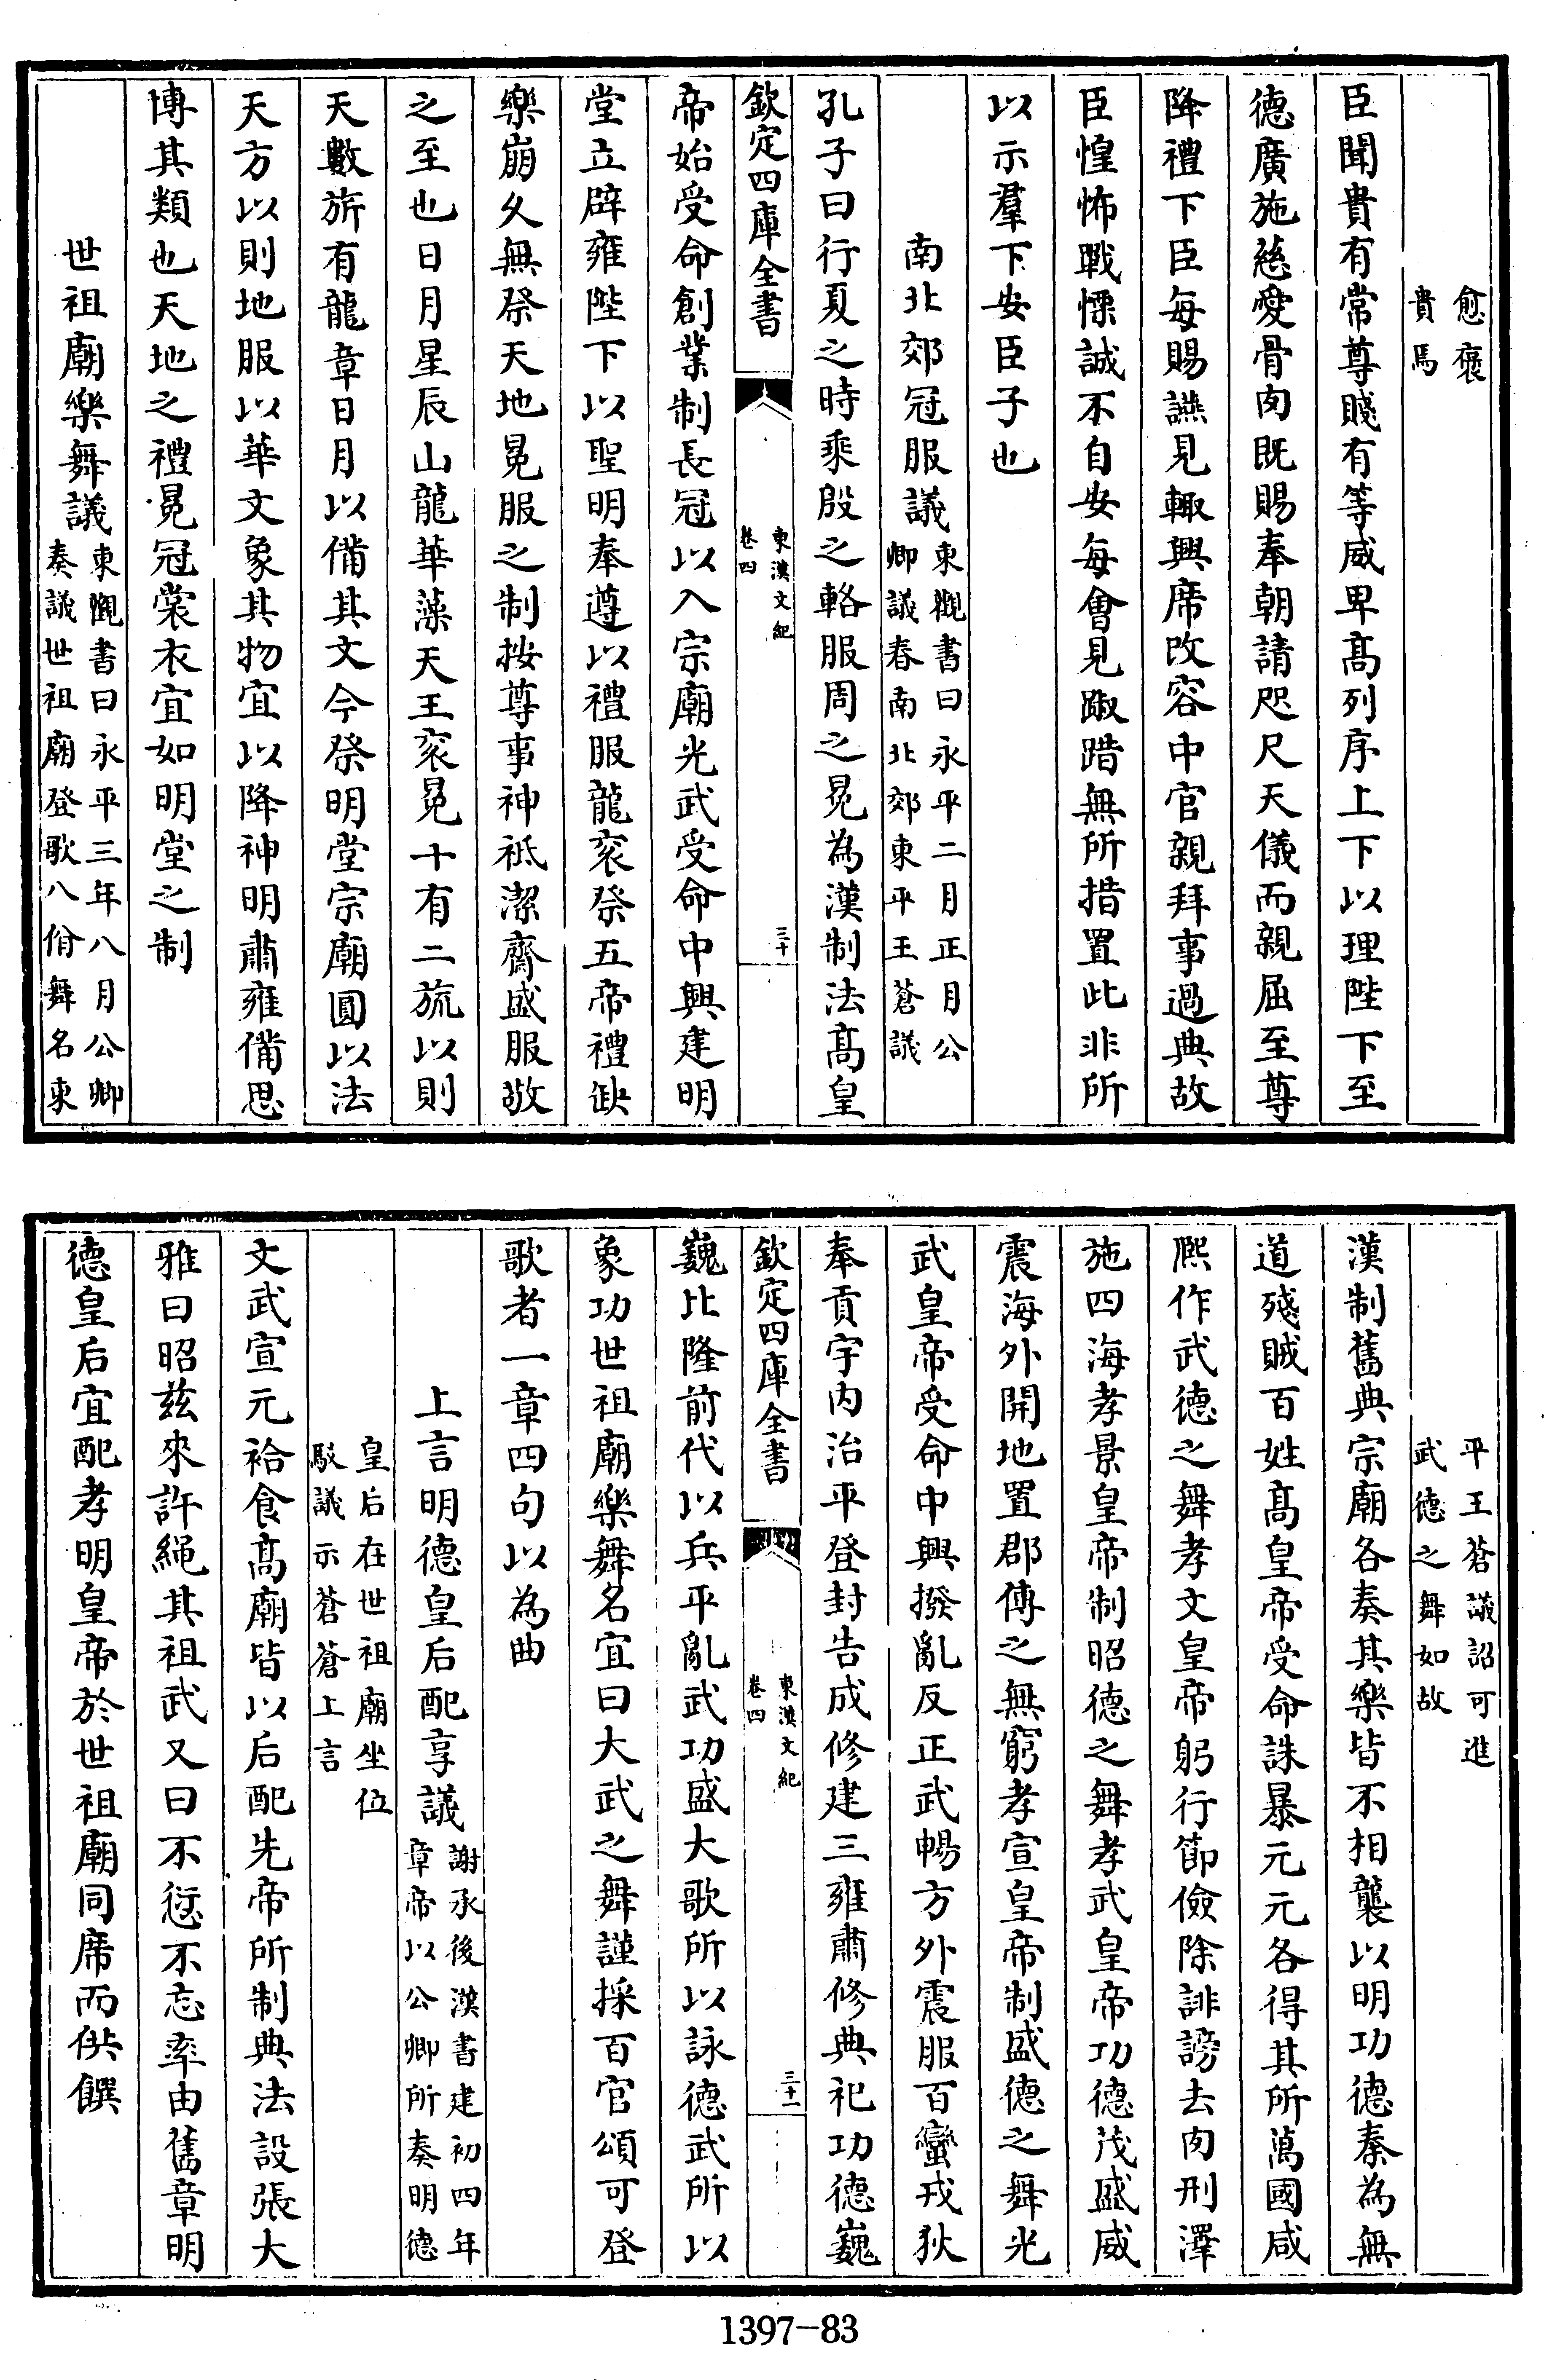 愈襃
貴焉
臣聞貴有常尊賤有等威卑髙列序上下以理陛下至
德廣施慈愛骨肉既賜奉朝請咫尺天儀而親屈至尊
降禮下臣每賜讌見輒興席改容中官親拜事過典故
臣惶怖戰慄誠不自安每會見踧踖無所措置此非所
以示羣下安臣子也
南北郊冠服議
東觀書曰永平二月正月公
卿議春南北郊東平王蒼議
孔子曰行夏之時乘殷之輅服周之冕為漢制法髙皇
欽定四庫全書
東漢文紀
卷四
三十
帝始受命創業制長冠以入宗廟光武受命中興建明
堂立辟雍陛下以聖明奉遵以禮服龍衮祭五帝禮缺
樂崩久無祭天地冕服之制按尊事神祇潔齋盛服敬
之至也日月星辰山龍華藻天王衮冕十有二旒以則
天數旂有龍章日月以備其文今祭明堂宗廟圓以法
天方以則地服以華文象其物宜以降神明肅雍備思
博其類也天地之禮冕冠裳衣宜如明堂之制
世祖廟樂舞議
東觀書曰永平三年八月公卿
奏議世祖廟登歌八佾舞名東
平王蒼議詔可進
武德之舞如故
漢制舊典宗廟各奏其樂皆不相襲以明功德秦為無
道殘賊百姓髙皇帝受命誅暴元元各得其所萬國咸
熙作武德之舞孝文皇帝躬行節儉除誹謗去肉刑澤
施四海孝景皇帝制昭德之舞孝武皇帝功德茂盛威
震海外開地置郡傳之無窮孝宣皇帝制盛德之舞光
武皇帝受命中興撥亂反正武暢方外震服百蠻戎狄
奉貢宇内治平登封告成修建三雍肅修典祀功德巍
欽定四庫全書
東漢文紀
卷四
三十一
巍比隆前代以兵平亂武功盛大歌所以詠德武所以
象功世祖廟樂舞名宜曰大武之舞謹採百官頌可登
歌者一章四句以為曲
上言明德皇后配享議
謝承後漢書建初四年
章帝以公卿所奏明德
皇后在世祖廟坐位
駁議示蒼蒼上言
文武宣元祫食髙廟皆以后配先帝所制典法設張大
雅曰昭兹來許繩其祖武又曰不愆不忘率由舊章明
德皇后宜配孝明皇帝於世祖廟同席而供饌
1397-83